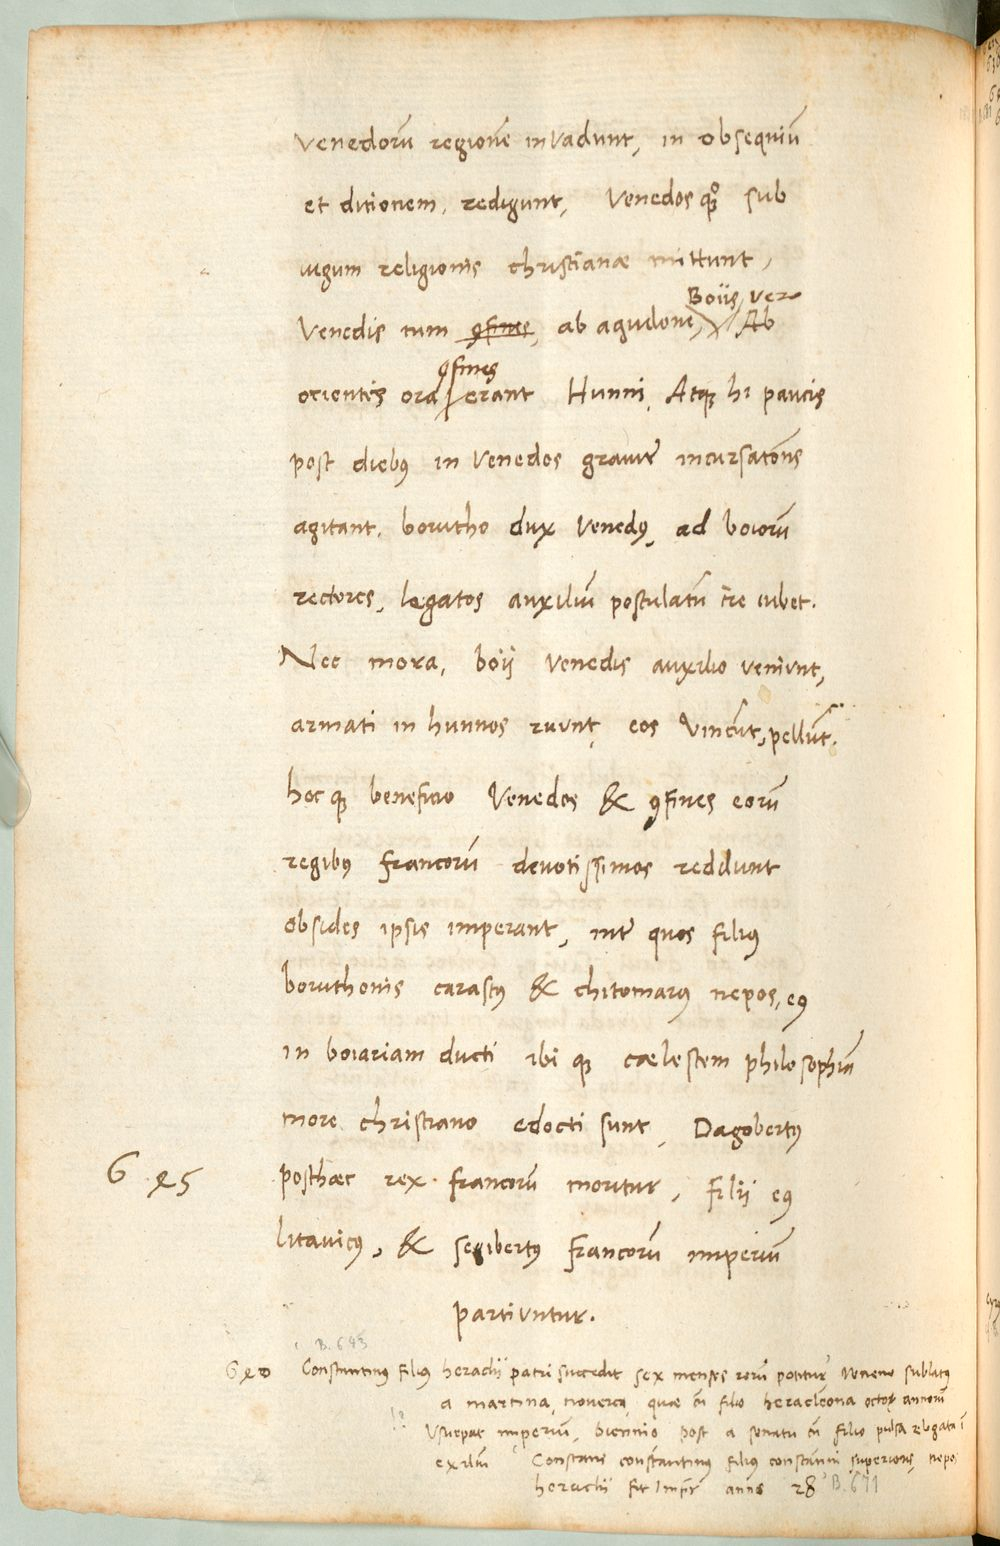 Venedorū regionē invadunt, in obsequiū
et ditionem, redigunt, Venedos qꝫ sub
iugum religionis christianæ mittunt,
Boiis, ver
Venedis tum ꝯfines, ab aquilone, Ab
ꝯfines
orientis ora erant Hunni, Atqꝫ hi paucis
post diebꝰ in Venedos grauit̄ incursatōns
agitant. borutho dux Venedꝰ, ad boiorū
rectores, legatos auxiliū postulatū ire iubet.
Nec mora, boij Venedis auxilio veniunt,
armati in hunnos ruunt, eos vincūt, pellūt.
hoc qꝫ beneficio Venedos & ꝯfines eorū
regibꝰ francorū devotissimos reddunt
obsides ipsis imperant, int̄ quos filiꝰ
boruthonis carastꝰ & chitomarꝰ nepos, eꝰ
in boiariam ducti ibi qꝫ cælestem philosophiā
more christiano edocti sunt, Dagobertꝰ
6 45 posthæc rex francorū moritur, filij eꝰ
litavicꝰ, & segibertꝰ francorū imperiū
partiuntur.
B. 643
640 Constantinus filius heraclij patri succedit sex menses rerū potitur veneno sublatꝰ
a martina noverca, quæ cū filio heracleona octo annorū
Usurpat imperiū, biennio post a senatu cū filio pulsa relegata ī
exiliū Constans constantinus filius constantini superioris, nepos
heraclij fit Impr̄ anno 28 B. 671